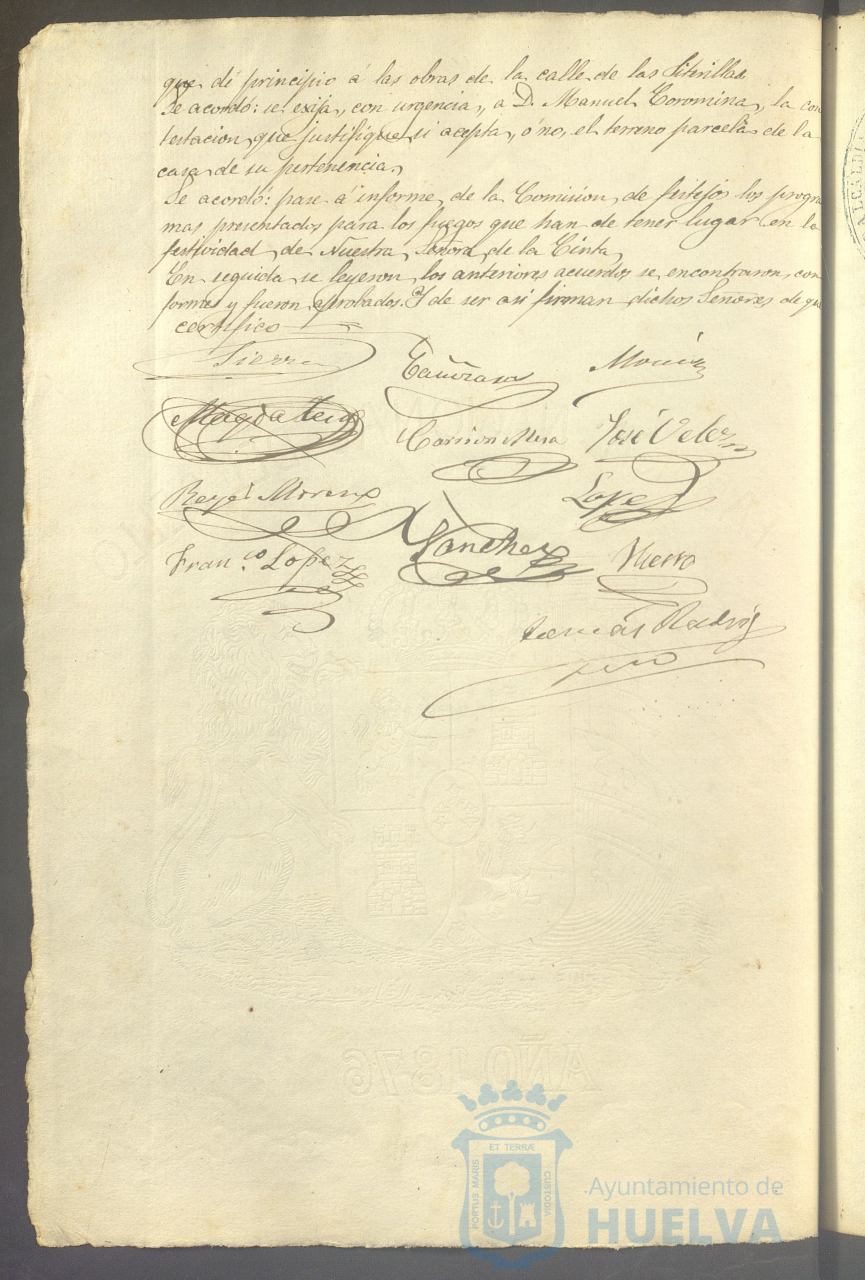 que dé principio á las obras de la calle de las
Se acordó: se exija, con urgencia, a D. Manuel Coromina, la con
testacion que justifique si acepta, ó no, el terreno parcela de la
casa de su pertenencia,
Se acordó: pase á informe, de la Comision de festejos los progra
mas presentados para los fuegos que han de tener lugar en la
festividad de Nuestra Señora de la Cinta,
En seguida se leyeron los anteriores acuerdos se encontraron con
formes y fueron aprobados. Y de ser asi firman dichos Señores de que
certifico
Sierra
Garrion Mora José Velez
Reyes Moreno Lopez
Fran.co Lopez Sanchez
AÑO 1876
ET TERRÆ
PORTUS MARIS
CUSTODIA
Ayuntamiento de
HUELVA